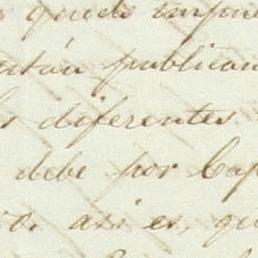 quede impu
están publican
s diferentes
debe por Cap
o. asi es, qu